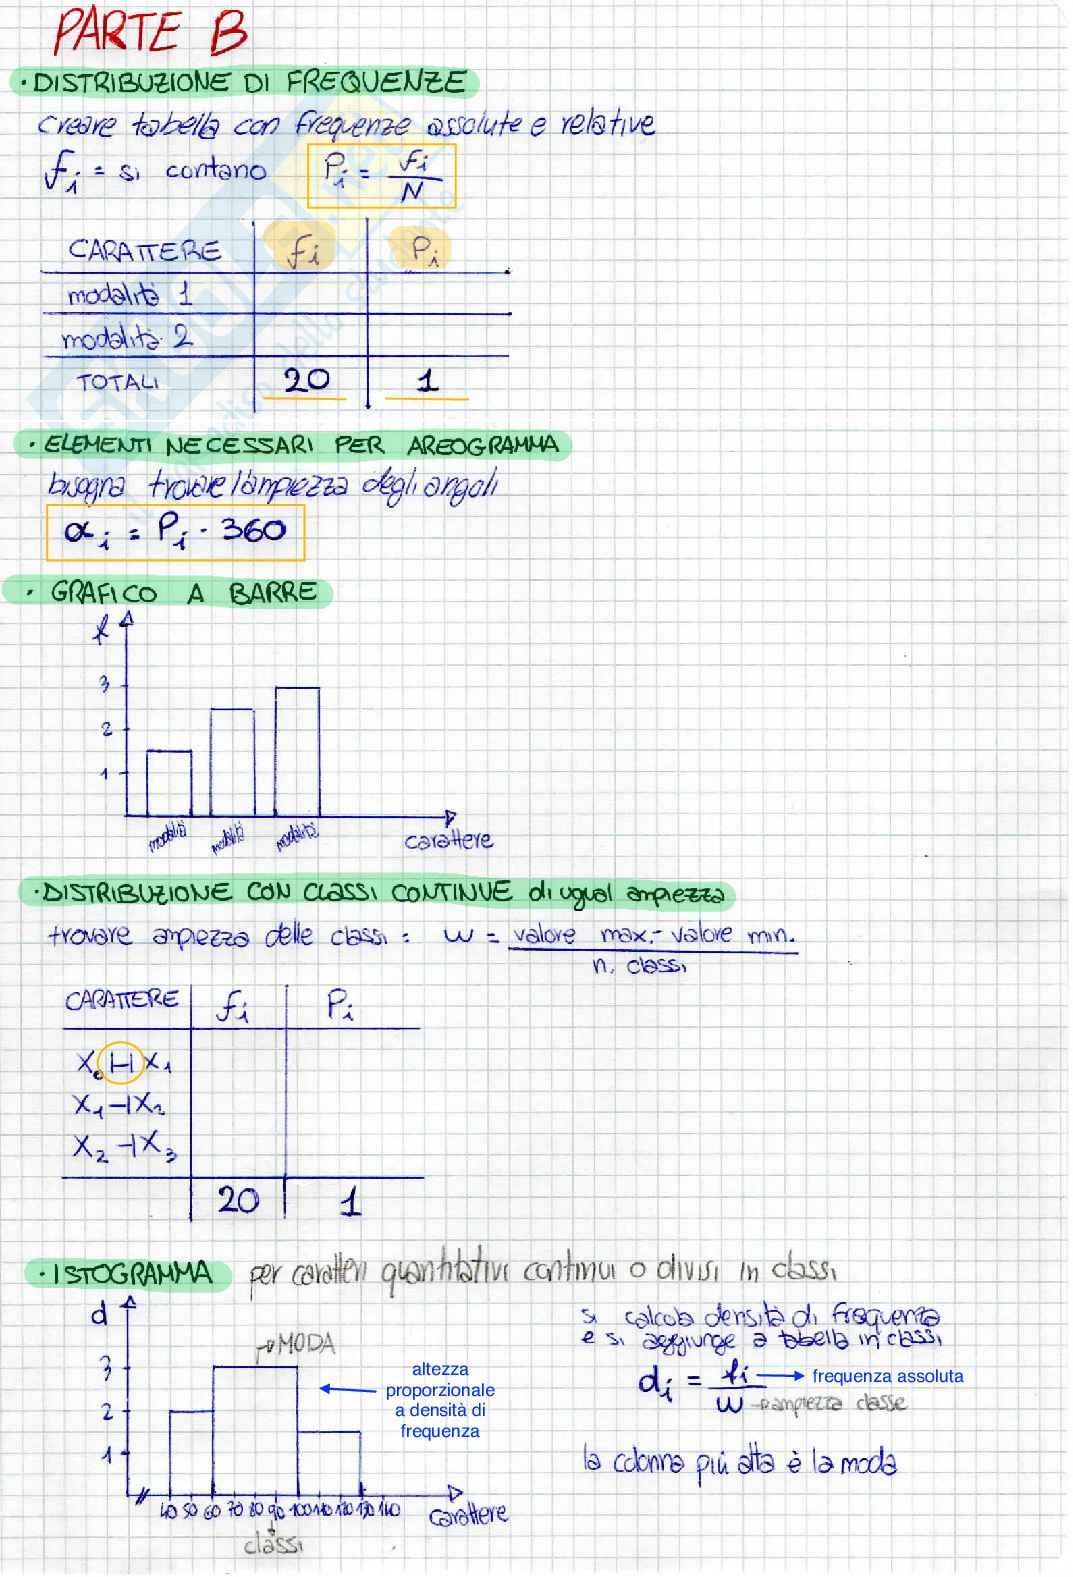 PARTE B
· DISTRIBUZIONE DI FREQUENZE
creare tabella con frequenze assolute e relative
fi = si contano Pi = fi / N
CARATTERE fi Pi
modalità 1
modalità 2
TOTALI 20 1
· ELEMENTI NECESSARI PER AREOGRAMMA
bisogna trovare l'ampiezza degli angoli
αi = Pi · 360
· GRAFICO A BARRE
f
3
2
1
modalità modalità modalità
carattere
· DISTRIBUZIONE CON CLASSI CONTINUE di ugual ampiezza
trovare ampiezza delle classi: w = valore max. - valore min. / n. classi
CARATTERE fi Pi
X0 |-| X1
X1 -| X2
X2 -| X3
20 1
· ISTOGRAMMA per caratteri quantitativi continui o divisi in classi
d
MODA
3
2
1
40 50 60 70 80 90 100 110 120 130 140
carattere
classi
altezza
proporzionale
a densità di
frequenza
si calcola densità di frequenza
e si aggiunge a tabella in classi
di = fi / w
frequenza assoluta
ampiezza classe
la colonna più alta è la moda